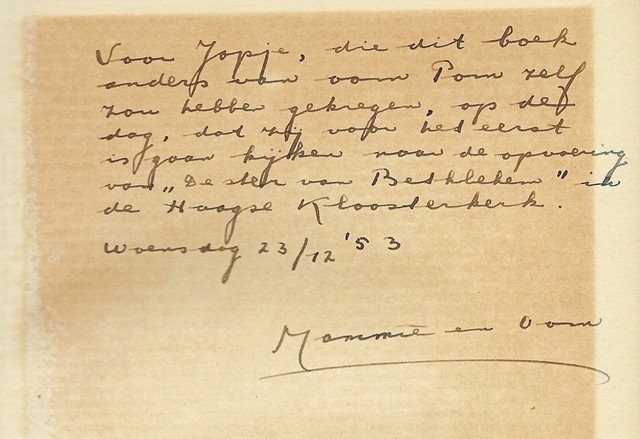 Voor Jopje, die dit boek
anders van oom Pom zelf
zou hebben gekregen, op de
dag, dat zij voor het eerst
is gaan kijken naar de opvoering
van „De ster van Bethlehem" in
de Haagse Kloosterkerk.
Woensdag 23/12 '53
Mammie en Oom